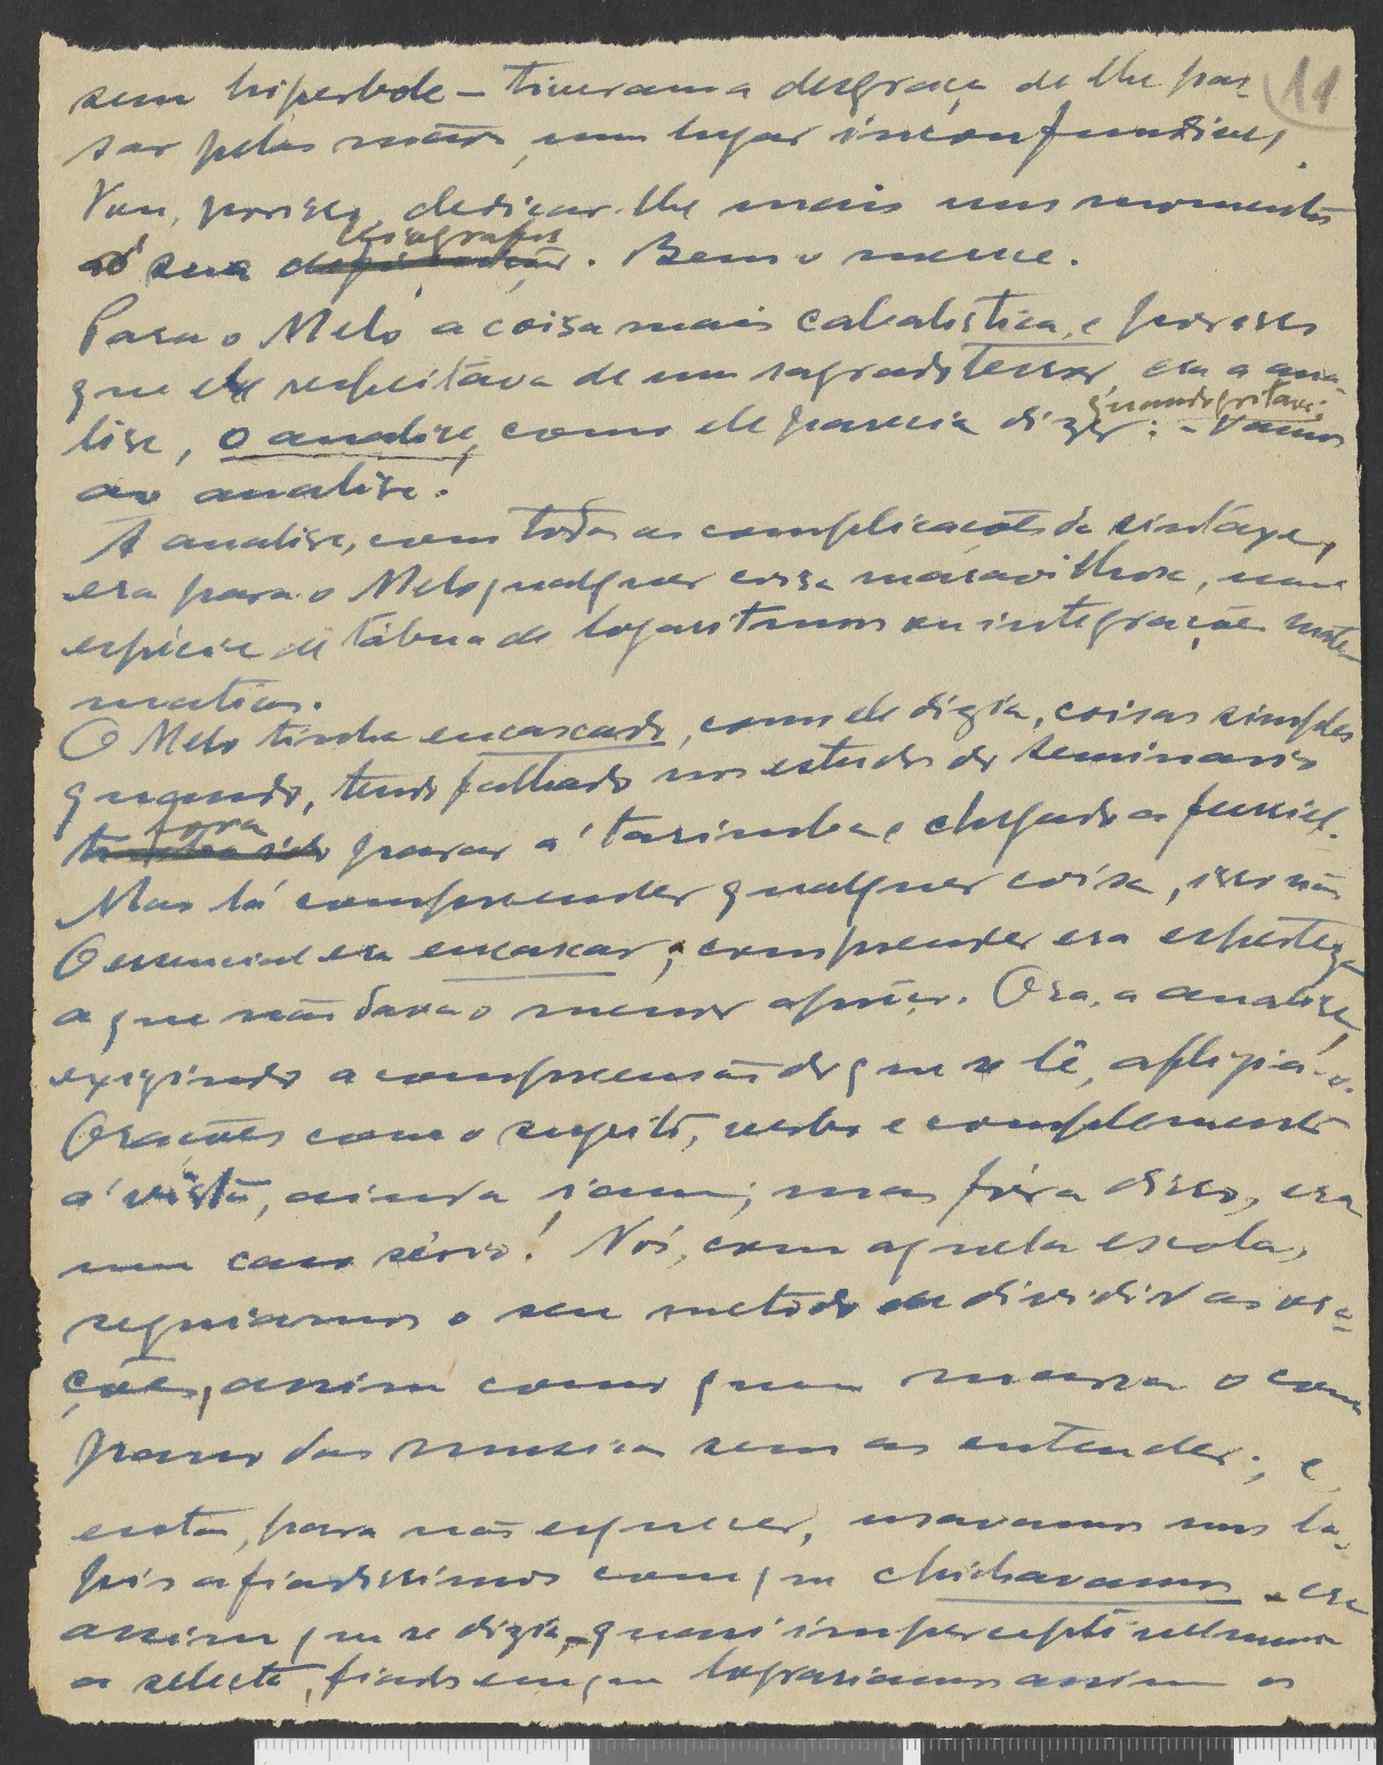 11
sem hiperbole - tiveram a desgraça de lhe pas-
sar pelas mãos, um lugar inconfundivel.
Vou, por isso, dedicar-lhe mais uns momentos
biografos
só sua. Bem o merece.
Para o Melo a coisa mais cabalistica, e por isso
que ele respeitava de um sagrado terror, era a aná-
quando gritava:
lise, o analise, como ele parecia dizer: - Vamos
ao analise!
A analise, com todas as complicações da sintaxe,
era para o Melo qualquer coisa maravilhosa, uma
espécie de tábua de logaritmos ou integrações mate-
maticas.
O Melo tinha encascado, como ele dizia, coisas simples
quando, tendo falhado nos estudos do seminario
fora
tinha ido parar á tarimba e chegado a furriel.
Mas lá compreender qualquer coisa, isso não
O essencial era encascar; compreender era esperteza
a que não dava o menor apreço. Ora, a analise,
exigindo a compreensão do que se lê, afligia-o.
Orações com o sujeito, verbo e complemento
á vista, ainda iam; mas fóra disso, era
um caso sério! Nós, com aquela escola,
seguiamos o seu metodo de dividir as ora-
ções, assim como quem marca o com-
passo das musicas sem as entender; e,
então, para não esquecer, usavamos uns la-
pis afiadissimos com que chichavamos - era
assim que se dizia - quasi imperceptivelmente
a selecta, fiados em que lograriamos assim os